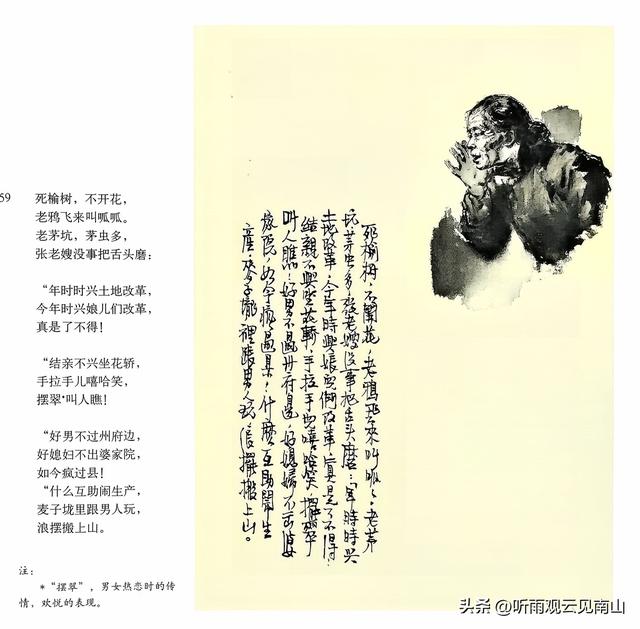 59
死榆树，不开花，
老鸦飞来叫呱呱。
老茅坑，茅虫多，
张老嫂没事把舌头磨：
“年时时兴土地改革，
今年时兴娘儿们改革，
真是了不得！
“结亲不兴坐花轿，
手拉手儿嘻哈笑，
摆翠*叫人瞧！
“好男不过州府边，
好媳妇不出婆家院，
如今疯过县！
“什么互助闹生产，
麦子垅里跟男人玩，
浪摆搬上山。
注：
*“摆翠”，男女热恋时的传
情，欢悦的表现。
死榆树，不開花，老鸦飛來叫呱呱。老茅
坑，茅虫多，張老嫂没事把舌头磨：「年時時兴
土地改革，今年時興娘兒們改革，真是了不得！
结親不興坐花轎，手拉手兒嘻哈笑，擺翠
叫人瞧！好男不過州府邊，好媳婦不出婆
家院，如今瘋過县！什麽互助鬧生
產，麥子壠裡跟男人玩，浪擺搬上山。
头条 @听雨观云见南山